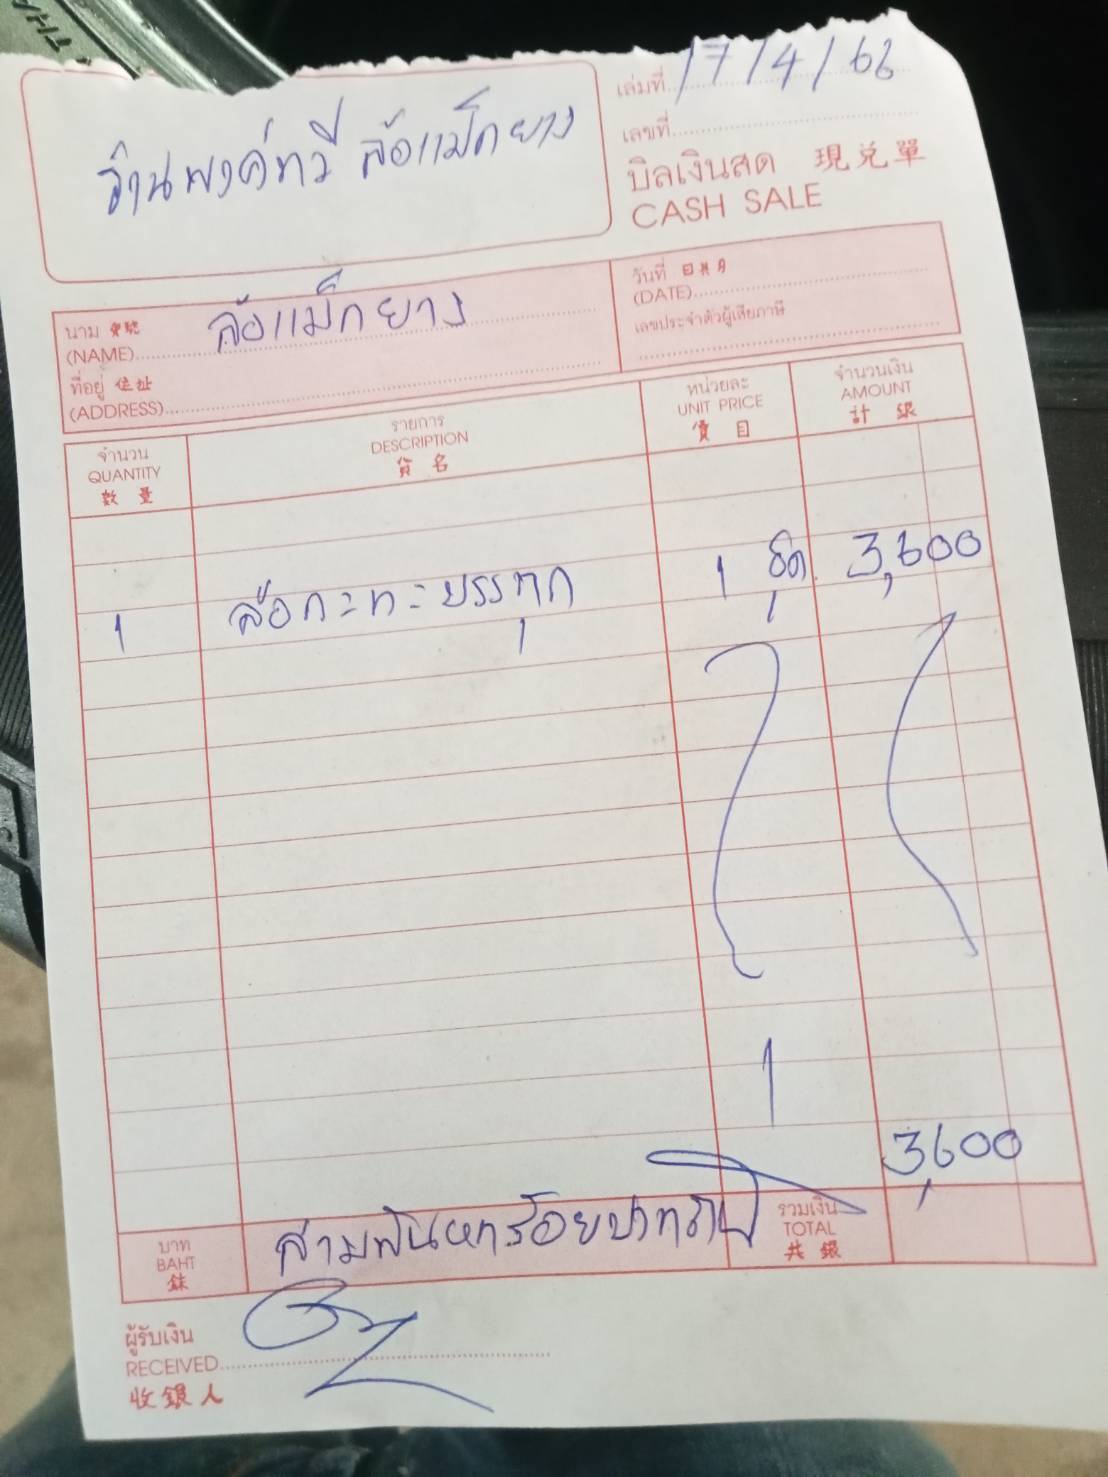 เล่มที่ 17/4/66
ร้านพงค์ทวี ล้อแม็กยาง
เลขที่
บิลเงินสด 現兌單
CASH SALE
นาม 寶號
(NAME) ล้อแม็กยาง
ที่อยู่ 住址
(ADDRESS)
วันที่ 日月
(DATE)
เลขประจำตัวผู้เสียภาษี
จำนวน
QUANTITY
數量
รายการ
DESCRIPTION
貨名
หน่วยละ
UNIT PRICE
價目
จำนวนเงิน
AMOUNT
計銀
1 ล้อกะทะบรรทุก 1 ชุด 3,600
1
3,600
บาท
BAHT
銖
สามพันหกร้อยบาท
รวมเงิน
TOTAL
共銀
ผู้รับเงิน
RECEIVED
收銀人